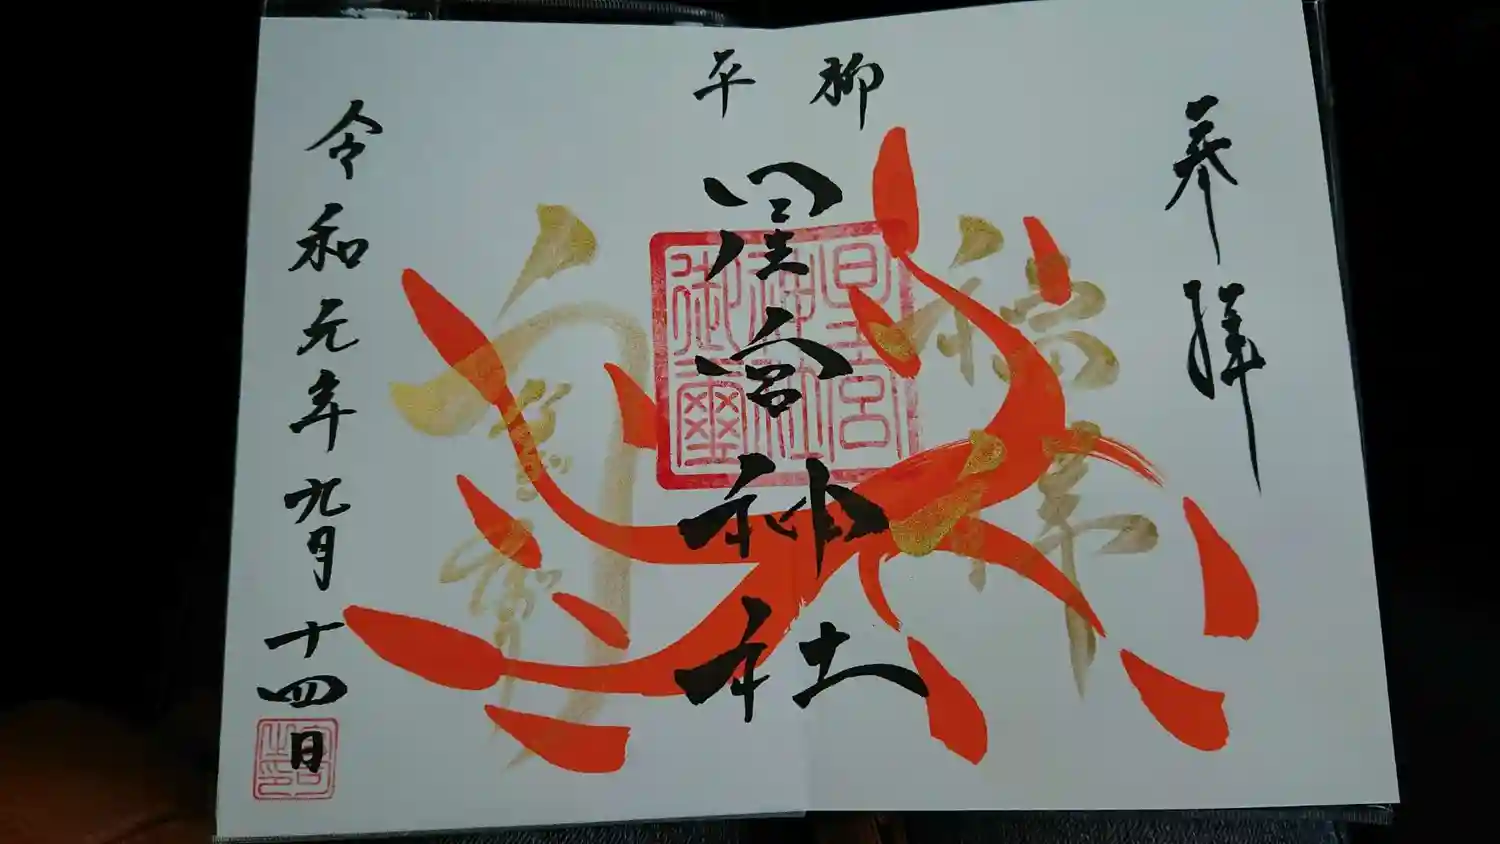 奉拝
平柳
星宮神社
星宮
神社
御璽
令和元年九月十四日
宮司
之印